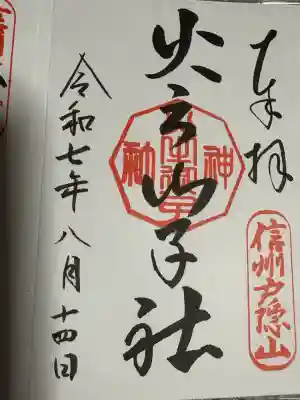 奉拝
信州戸隠山
火之御子社
令和七年八月十四日